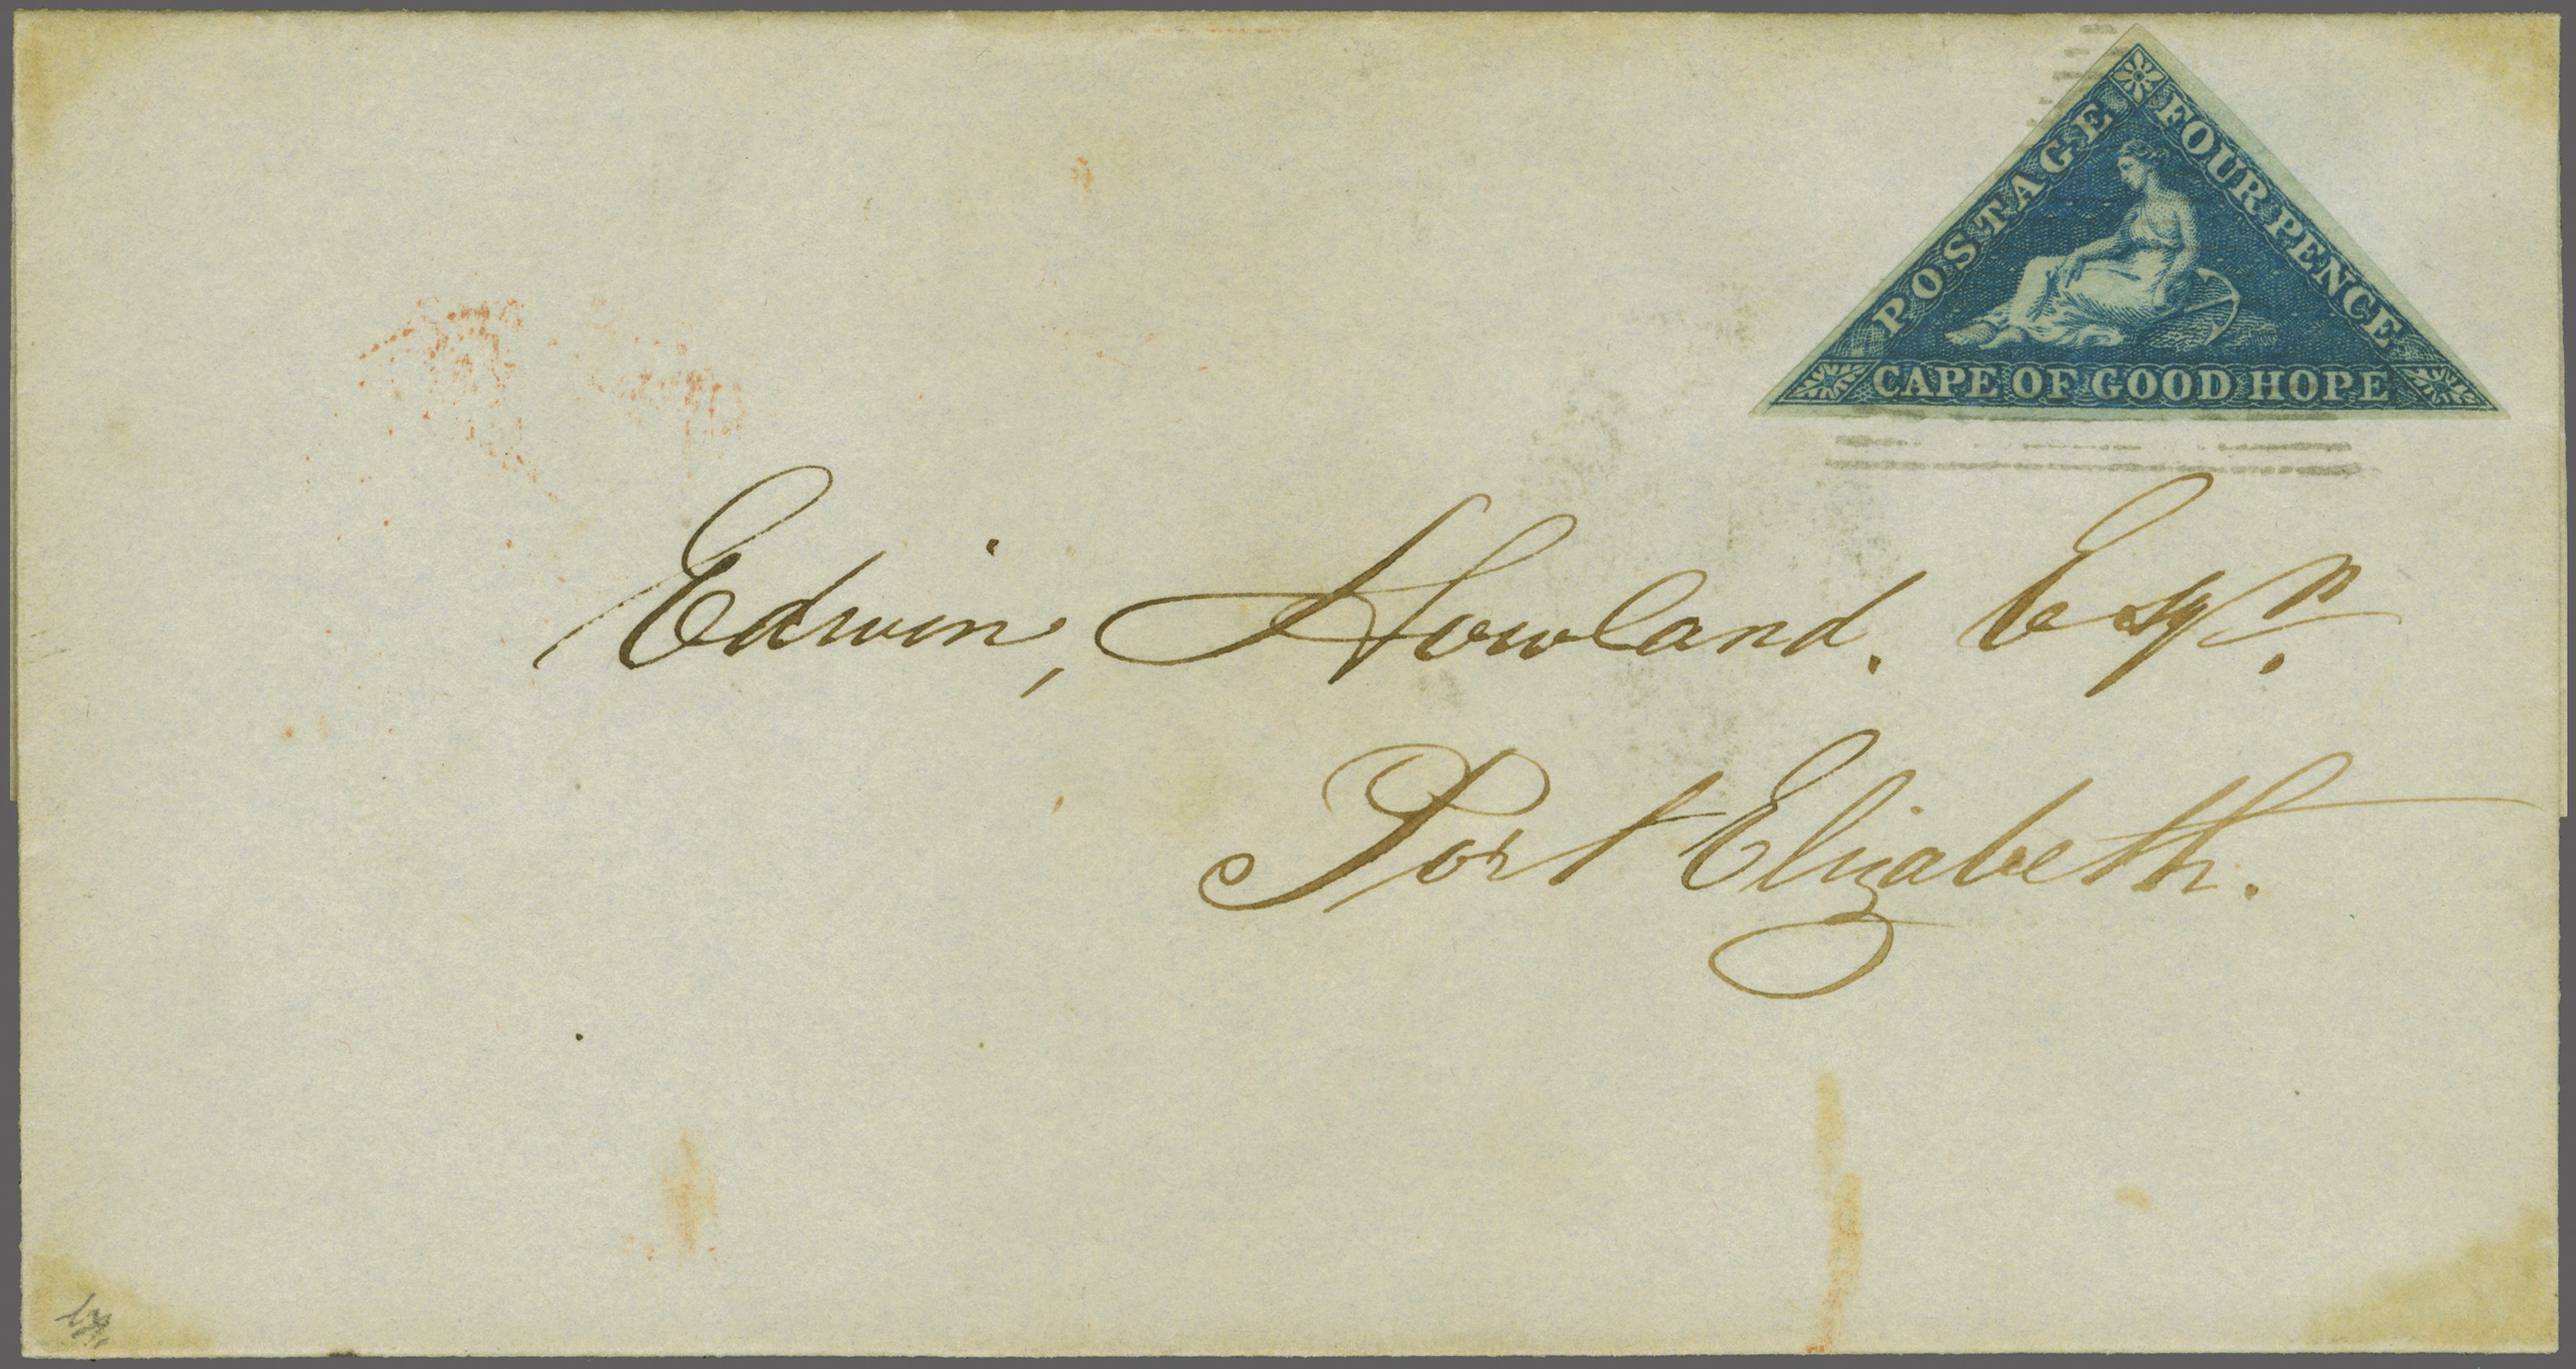 POSTAGE
FOUR PENCE
CAPE OF GOOD HOPE
Edwin, Howland. Esqr.
Port Elizabeth.